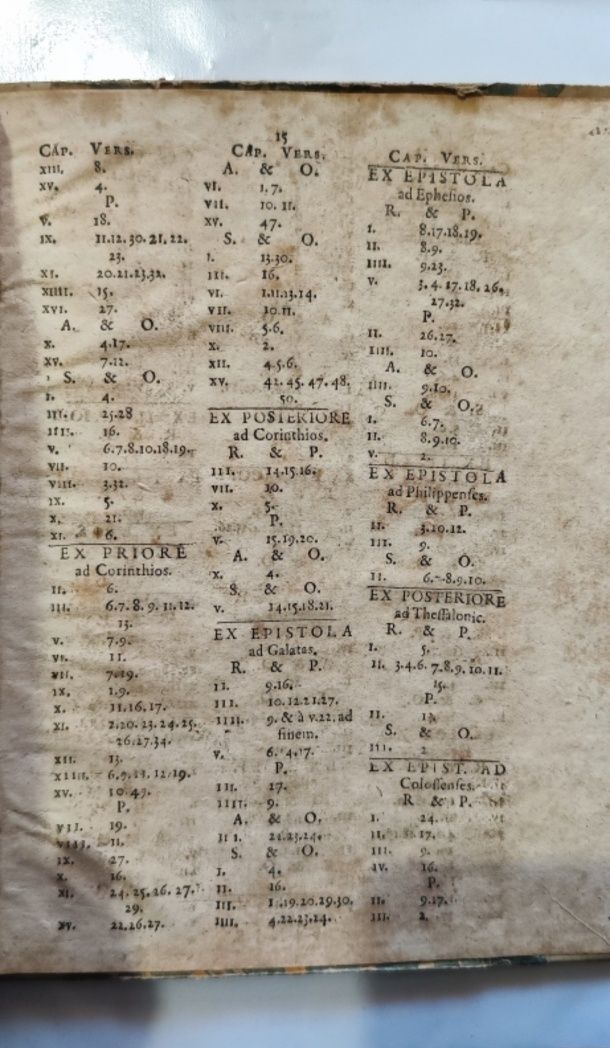 15
CAP. VERS.
XIII. 8.
XV. 4.
P.
V. 18.
IX. 11.12.30.21.22.
23.
XI. 20.21.23.32.
XIIII. 15.
XVI. 27.
A. & O.
X. 4.17.
XV. 7.12.
S. & O.
I. 4.
III. 25.28
IIII. 16.
V. 6.7.8.10.18.19.
VII. 10.
VIII. 3.32.
IX. 5.
X. 21.
XI. 6.
EX PRIORE
ad Corinthios.
II. 6.
III. 6.7.8.9.11.12.
13.
V. 7.9.
VI. 11.
VII. 7.19.
IX. 1.9.
X. 11.16.17.
XI. 2.20.23.24.25.
26.27.34.
XII. 13.
XIIII. 6.9.11.12.19.
XV. 10.47.
P.
VII. 19.
VIII. 11.
IX. 27.
X. 16.
XI. 24.25.26.27.
29.
XV. 22.26.27.
CAP. VERS.
A. & O.
VI. 1.7.
VII. 10.11.
XV. 47.
S. & O.
I. 13.30.
III. 16.
VI. 1.11.13.14.
VII. 10.11.
VIII. 5.6.
X. 2.
XII. 4.5.6.
XV. 42.45.47.48.
50.
EX POSTERIORE
ad Corinthios.
R. & P.
III. 14.15.16.
VII. 10.
X. 5.
P.
V. 15.19.20.
A. & O.
X. 4.
S. & O.
V. 14.15.18.21.
EX EPISTOLA
ad Galatas.
R. & P.
II. 9.16.
III. 10.12.21.27.
IIII. 9. & à v.22.ad
finem.
V. 6.4.17.
P.
III. 27.
IIII. 9.
A. & O.
III. 22.23.24.
S. & O.
I. 4.
II. 16.
III. 1.19.20.29.30.
IIII. 4.22.23.24.
CAP. VERS.
EX EPISTOLA
ad Ephesios.
R. & P.
I. 8.17.18.19.
II. 8.9.
IIII. 9.23.
V. 3.4.17.18.26.
27.32.
P.
II. 26.27.
IIII. 10.
A. & O.
IIII. 9.10.
S. & O.
I. 6.7.
II. 8.9.10.
V. 2.
EX EPISTOLA
ad Philippenses.
R. & P.
II. 3.10.12.
III. 9.
S. & O.
II. 6.8.9.10.
EX POSTERIORE
ad Thessalonic.
R. & P.
I. 5.
II. 3.4.6.7.8.9.10.11.
15.
P.
II. 13.
S. & O.
III. 2
EX EPIST. AD
Colossenses.
R & P.
I. 24.
II. 17.
III. 9.
IV. 16.
P.
II. 9.17.
III. 2.